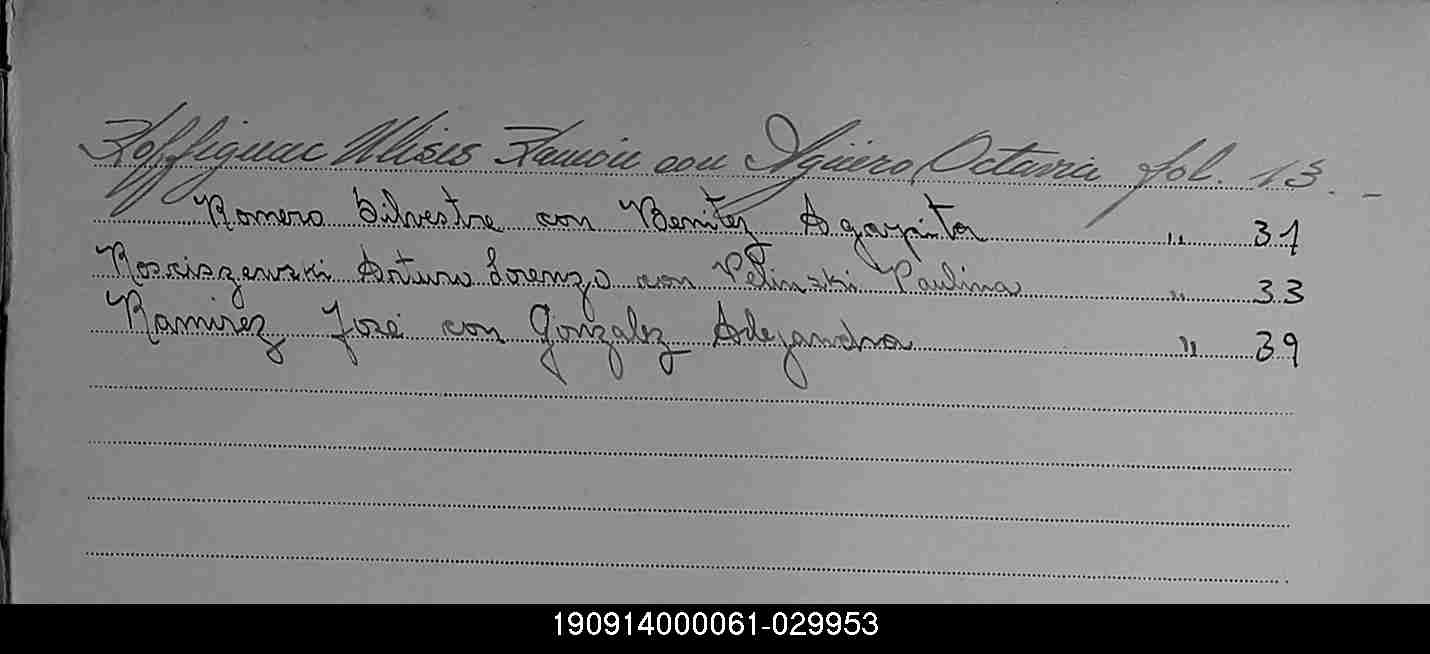 Roffignac Ulises Ramón con Agüero Octavia fol. 13. -
Romero Silvestre con Benitez Agapita " 31
Rossiszewski Arturo Lorenzo con Pelinski Paulina " 33
Ramirez José con Gonzalez Alejandra " 39
190914000061-029953